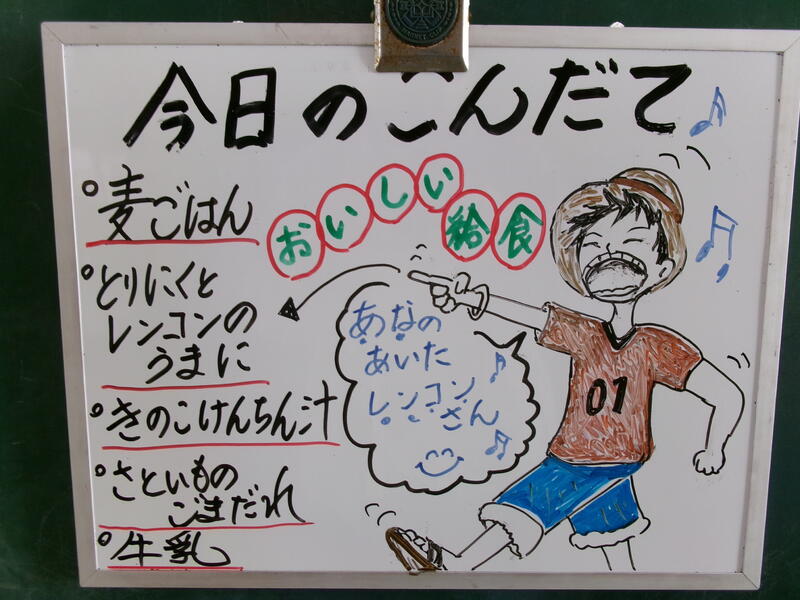 今日のこんだて
おいしい給食
○麦ごはん
○とりにくと
レンコンの
うまに
○きのこけんちん汁
○さといもの
ごまだれ
○牛乳
あなの
あいた
レンコン
さん
01